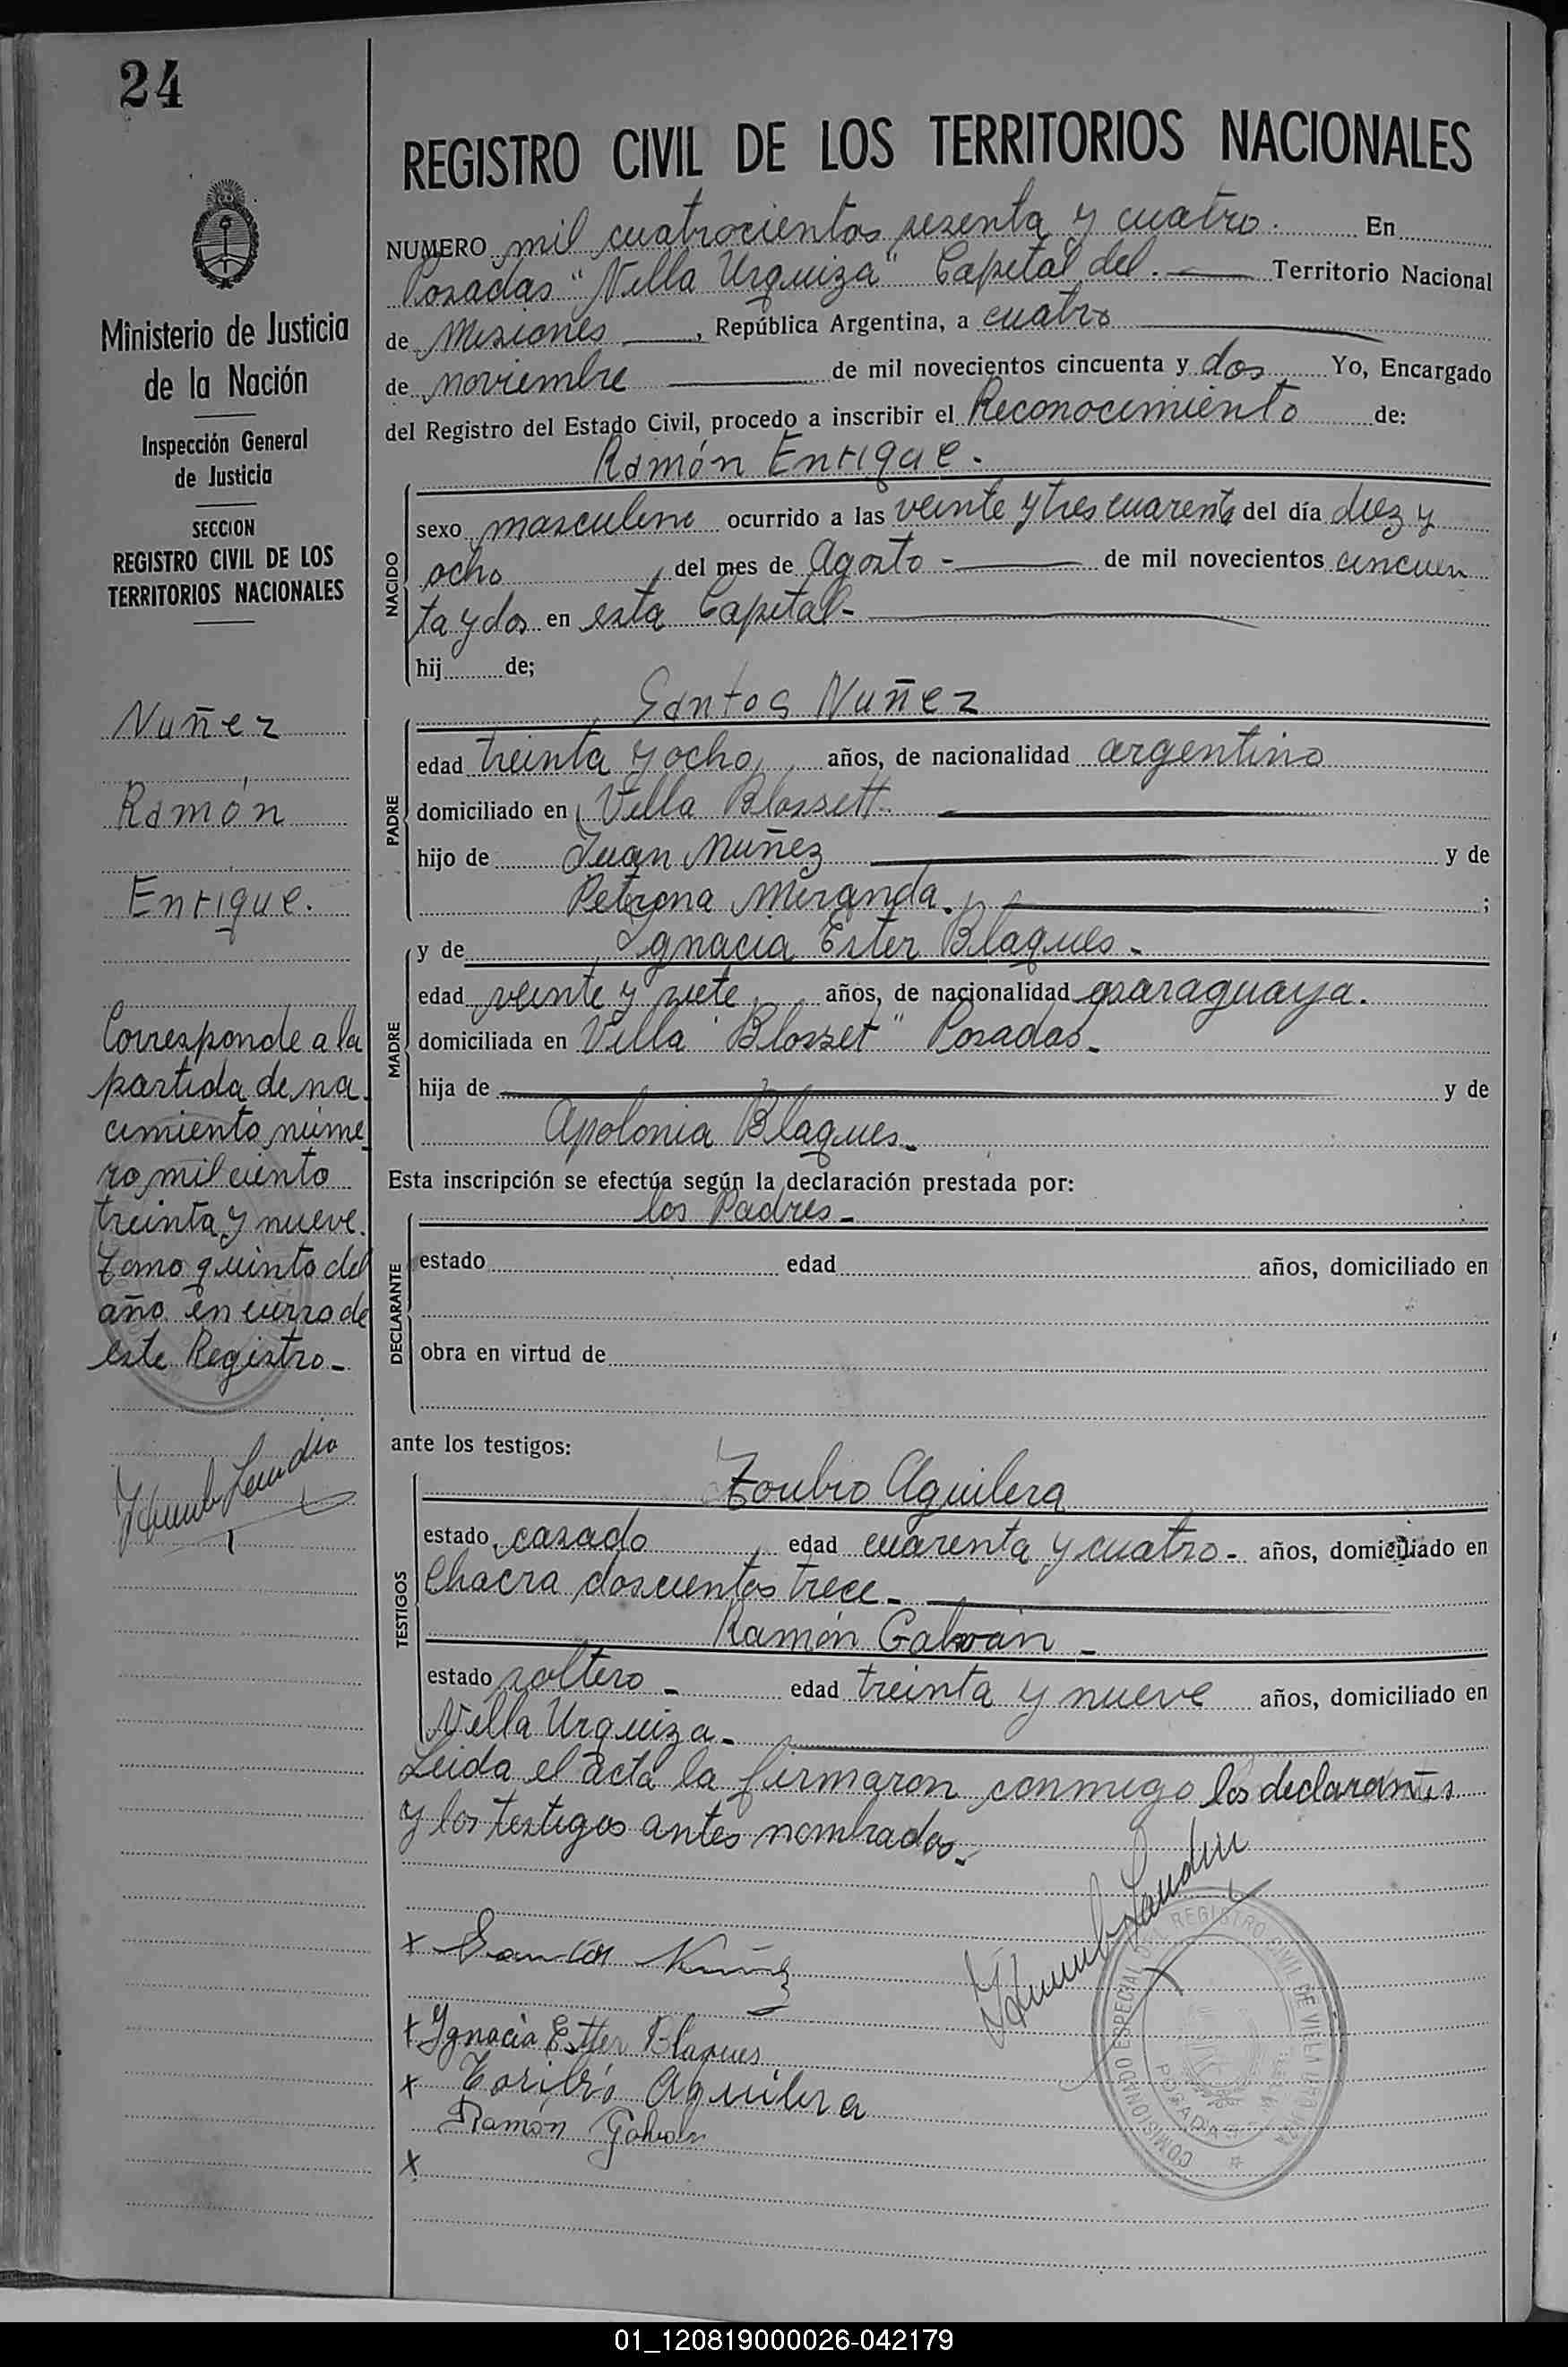 24
REGISTRO CIVIL DE LOS TERRITORIOS NACIONALES
NUMERO mil cuatrocientos sesenta y cuatro. En
Posadas "Villa Urquiza" Capital del. Territorio Nacional
de Misiones, República Argentina, a cuatro
de noviembre de mil novecientos cincuenta y dos Yo, Encargado
del Registro del Estado Civil, procedo a inscribir el Reconocimiento de:
Ramón Enrique.
NACIDO
sexo masculino ocurrido a las veinte y tres cuarenta del día diez y
ocho del mes de Agosto - de mil novecientos cincuen
ta y dos en esta Capital-
hij de;
Santos Nuñez
PADRE
edad treinta y ocho, años, de nacionalidad argentino
domiciliado en Villa Blossett
hijo de Juan Nuñez y de
Petrona Miranda. ;
MADRE
y de Ignacia Ester Blaques-
edad veinte y siete, años, de nacionalidad paraguaya.
domiciliada en Villa "Blosset" Posadas-
hija de y de
Apolonia Blaques-
Esta inscripción se efectúa según la declaración prestada por:
los Padres-
DECLARANTE
estado edad años, domiciliado en
obra en virtud de
ante los testigos:
Toribio Aguilera
TESTIGOS
estado casado edad cuarenta y cuatro- años, domiciliado en
Chacra doscientos trece-
Ramón Galván-
estado soltero- edad treinta y nueve años, domiciliado en
Villa Urquiza-
Leida el acta la firmaron conmigo los declarantes
y los testigos antes nombrados-
x Santos Nuñez
x Ignacia Esther Blaques
x Toribio Aguilera
Ramón Galván
x
COMISIONADO ESPECIAL DEL REGISTRO CIVIL DE VILLA URQUIZA
POSADAS
Ministerio de Justicia
de la Nación
Inspección General
de Justicia
SECCION
REGISTRO CIVIL DE LOS
TERRITORIOS NACIONALES
Nuñez
Ramón
Enrique.
Corresponde a la
partida de na
cimiento núme
ro mil ciento
treinta y nueve.
Tomo quinto del
año en curso de
este Registro-
01_120819000026-042179